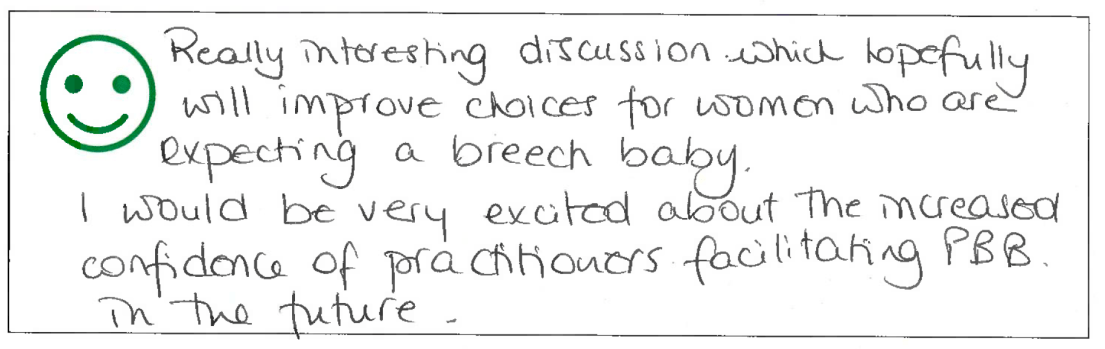 Really interesting discussion which hopefully
will improve choices for women who are
expecting a breech baby.
I would be very excited about the increased
confidence of practitioners facilitating PBB.
in the future.